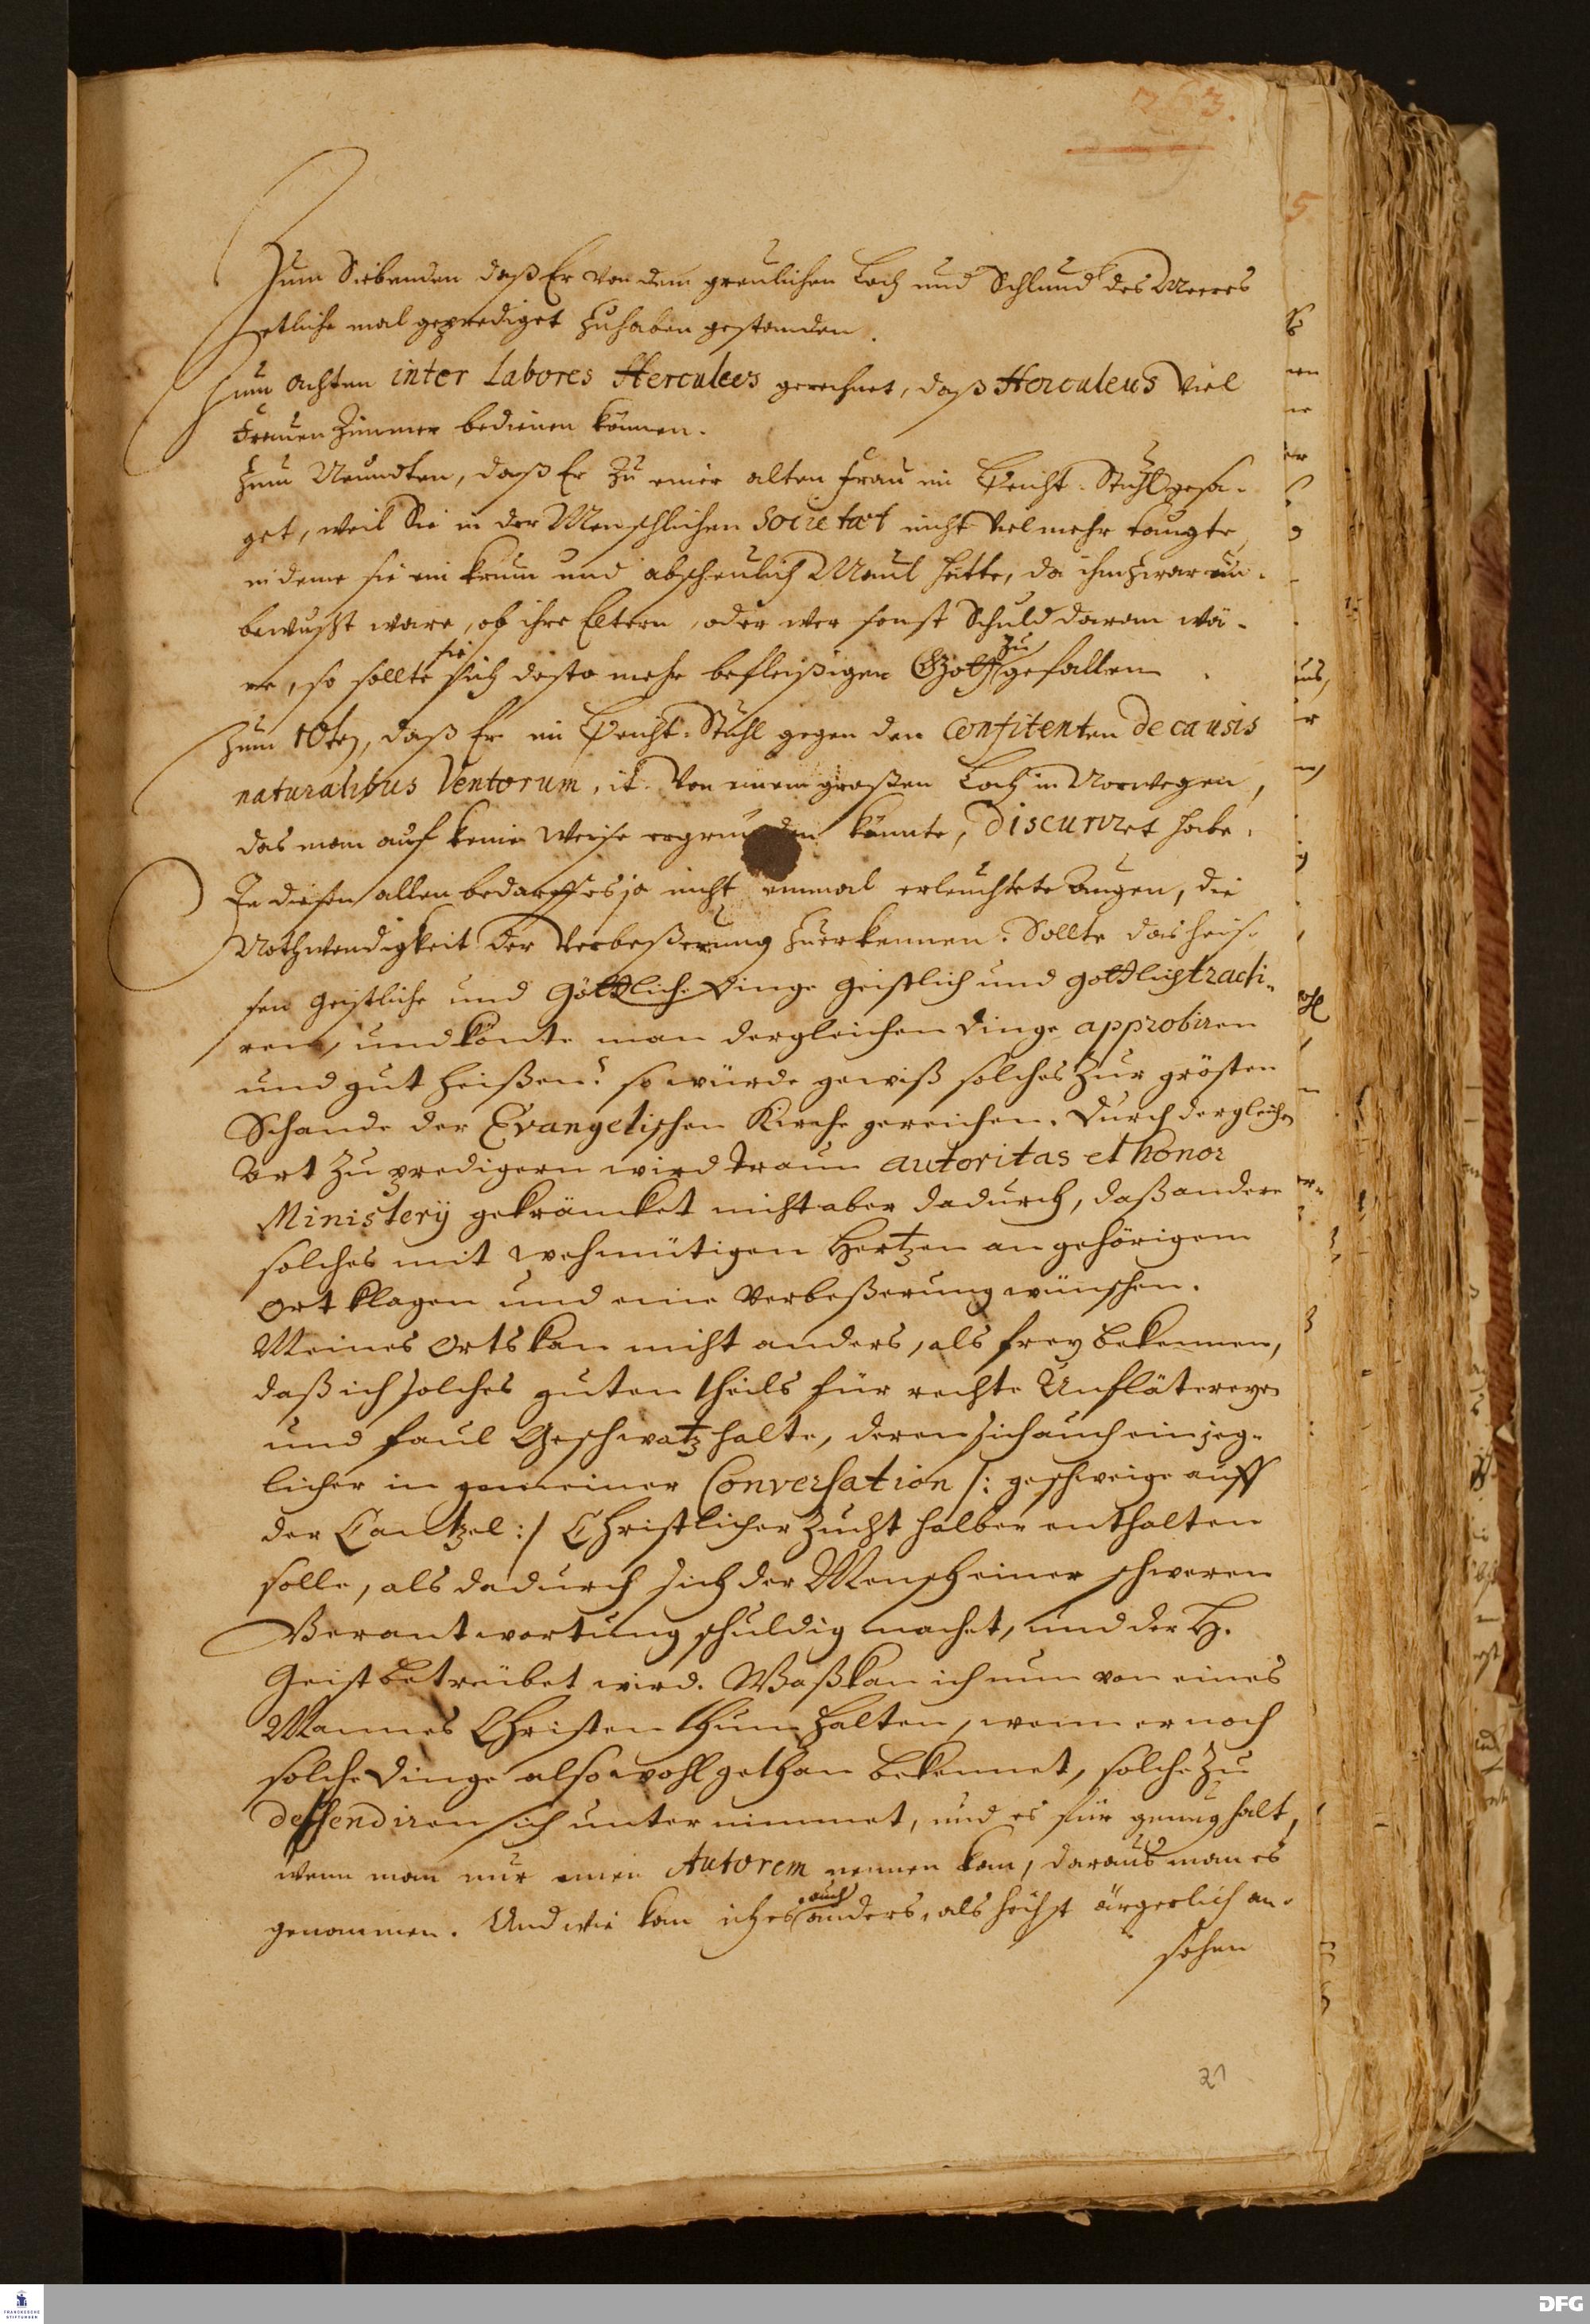 263.
Zum Siebenden daß Er von dem greulichen Loch und Schlund des Meeres
etliche mal geprediget zuhaben gestanden.
Zum achten inter Labores Herculeos gerechnet, daß Herculeus viel
Frauen Zimmer bedienen können.
Zum Neundten, daß Er zu einer alten Frau im Beicht-Stuhl gesa-
get, weil Sie in der Menschlichen Societæt nicht viel mehr taugte
in deme sie ein krum und abscheulich Maul hätte, da ihm zwar un-
bewust ware, ob ihre Eltern, oder wer sonst Schuld daran wä-
re, so sollte sie sich desto mehr befleißigen Gott zu gefallen.
Zum 10ten, daß Er im Beicht-Stuhl gegen den Confitenten de causis
naturalibus Ventorum, it. von einem großen Loch in Norwegen,
das man auf keine Weise ergründen könnte, discurriret habe.
In diesen allen bedarff es ja nicht einmal erleuchtete Augen, die
Nothwendigkeit der Verbeßerung zuerkennen. Sollte das heis-
sen Geistliche und Göttliche Dinge Geistlich und göttlich tracti-
ren, und könte man dergleichen Dinge approbiren
und gut heißen? so würde gewiß solches zur grösten
Schande der Evangelischen Kirche gereichen. Durch dergleichen
Art zu predigern wird traun autoritas et honor
Ministerij gekräncket nicht aber dadurch, daß andere
solches mit wehmütigen Hertzen an gehörigem
Ort klagen und eine Verbeßerung wünschen.
Meines Orts kan nicht anders, als frey bekennen,
daß ich solches guten theils für rechte Unflätereyen
und faul Geschwatz halte, deren sich auch ein jeg-
licher in gemeiner Conversation /: geschweige auff
der Cantzel :/ Christlicher Zucht halber enthalten
solle, als dadurch sich der Mensch einer schweren
Verantwortung schuldig machet, und der H.
Geist betrübet wird. Waß kan ich nun von eines
Mannes Christenthum halten, wenn er noch
solche Dinge also wohl gethan bekennet, solche zu
deffendiren sich unternimmet, und es für genug halt,
wenn man nur einen Autorem nennen kan, daraus man es
genommen. Und wie kan ich es auch anders, als höchst ärgerlich an-
sehen
21
FRANCKESCHE
STIFTUNGEN
DFG